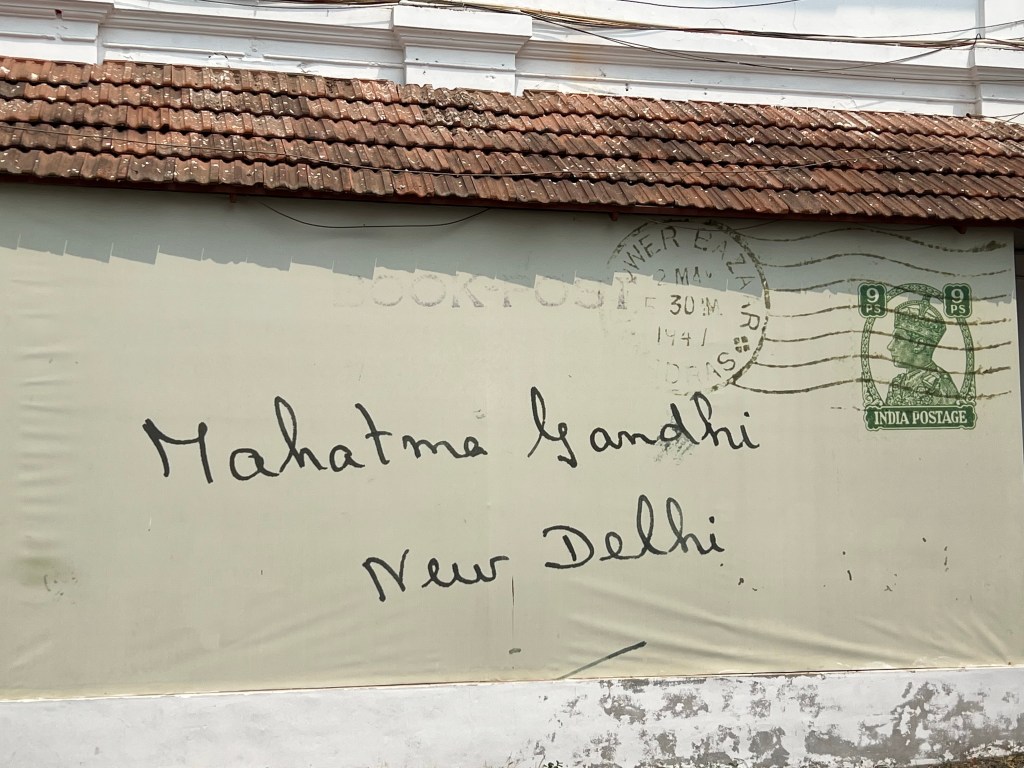 BOOK POST
BAZAAR
30
1947
9 9
PS PS
INDIA POSTAGE
Mahatma Gandhi
New Delhi